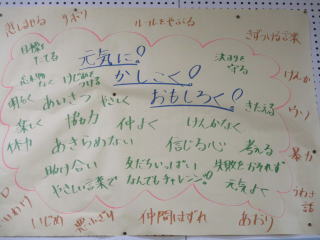 サボり
ルールをやぶる
きずつける言葉
目標を
たてる
元気に!
決まりを
守る
忘れ物
なく
けじめを
つける
かしこく!
けんか
明るく
あいさつ
やさしく
おもしろく!
きたえる
ウソ
楽しく
協力
仲よく
けんかなく
体力
あきらめない
信じる心
考える
暴力
助け合い
友だちいっぱい
失敗をおそれず
やさしい言葉で
なんでもチャレンジ!
元気よく
うわさ
話
いじめ
悪ふざけ
仲間はずれ
あおり